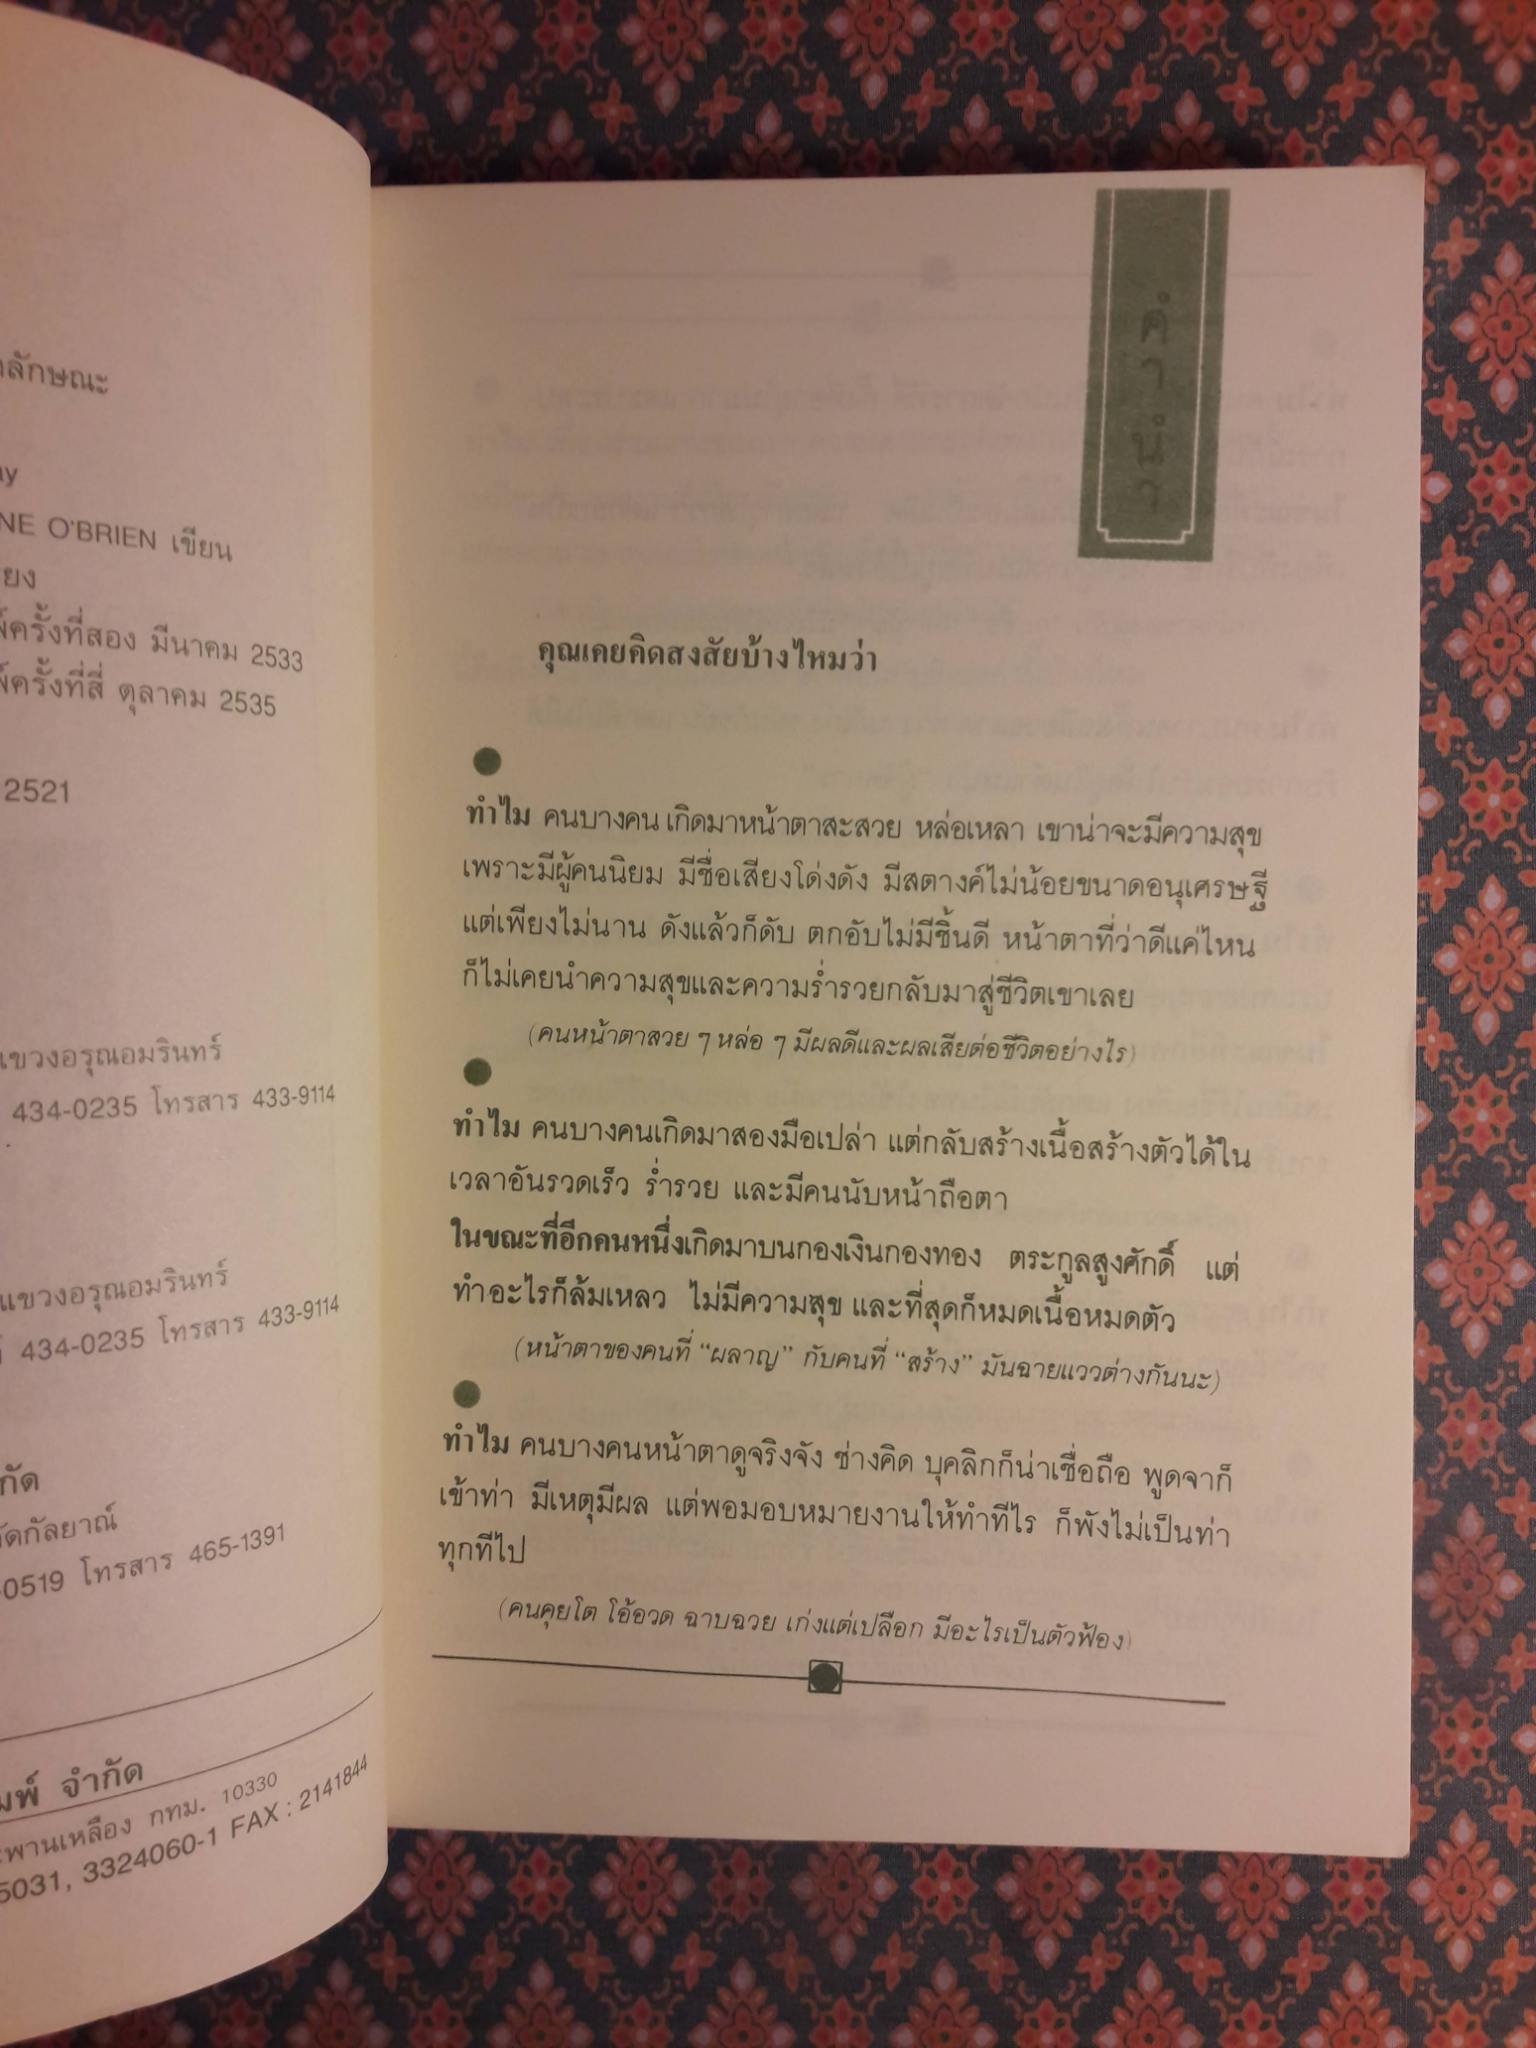 ลักษณะ
NE O'BRIEN เขียน
ครั้งที่สอง มีนาคม 2533
ครั้งที่สี่ ตุลาคม 2535
2521
แขวงอรุณอมรินทร์
434-0235 โทรสาร 433-9114
แขวงอรุณอมรินทร์
434-0235 โทรสาร 433-9114
กัด
กัลยาณ์
-0519 โทรสาร 465-1391
มพ์ จำกัด
ะพานเหลือง กทม. 10330
5031, 3324060-1 FAX : 2141844
คุณเคยคิดสงสัยบ้างไหมว่า
ทำไม คนบางคน เกิดมาหน้าตาสะสวย หล่อเหลา เขาน่าจะมีความสุข
เพราะมีผู้คนนิยม มีชื่อเสียงโด่งดัง มีสตางค์ไม่น้อยขนาดอนุเศรษฐี
แต่เพียงไม่นาน ดังแล้วก็ดับ ตกอับไม่มีชิ้นดี หน้าตาที่ว่าดีแค่ไหน
ก็ไม่เคยนำความสุขและความร่ำรวยกลับมาสู่ชีวิตเขาเลย
(คนหน้าตาสวย ๆ หล่อ ๆ มีผลดีและผลเสียต่อชีวิตอย่างไร)
ทำไม คนบางคนเกิดมาสองมือเปล่า แต่กลับสร้างเนื้อสร้างตัวได้ใน
เวลาอันรวดเร็ว ร่ำรวย และมีคนนับหน้าถือตา
ในขณะที่อีกคนหนึ่งเกิดมาบนกองเงินกองทอง ตระกูลสูงศักดิ์ แต่
ทำอะไรก็ล้มเหลว ไม่มีความสุข และที่สุดก็หมดเนื้อหมดตัว
(หน้าตาของคนที่ “ผลาญ” กับคนที่ “สร้าง” มันฉายแววต่างกันนะ)
ทำไม คนบางคนหน้าตาดูจริงจัง ช่างคิด บุคลิกก็น่าเชื่อถือ พูดจาก็
เข้าท่า มีเหตุมีผล แต่พอมอบหมายงานให้ทำทีไร ก็พังไม่เป็นท่า
ทุกทีไป
(คนคุยโต โอ้อวด ฉาบฉวย เก่งแต่เปลือก มีอะไรเป็นตัวฟ้อง)